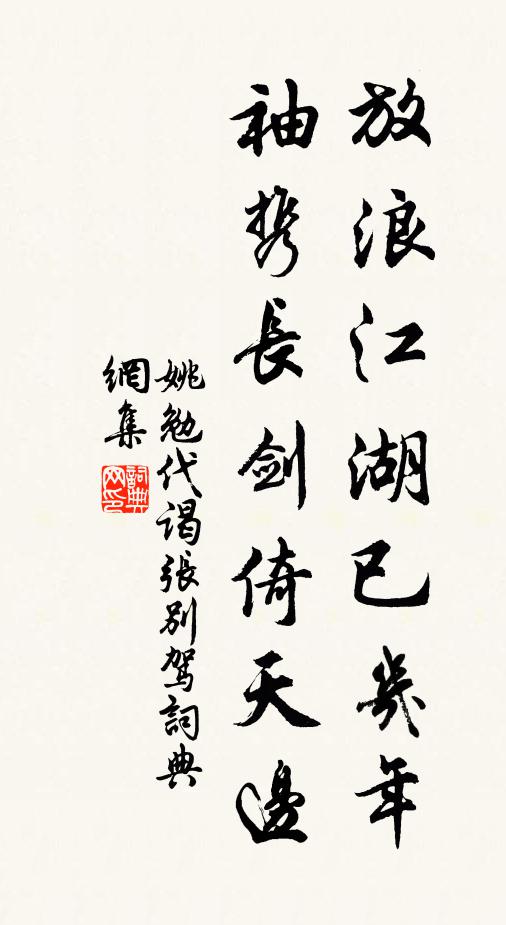 放浪江湖已幾年
袖携長劍倚天邊
姚勉代谒張别駕詞典
網集
詞典
网印